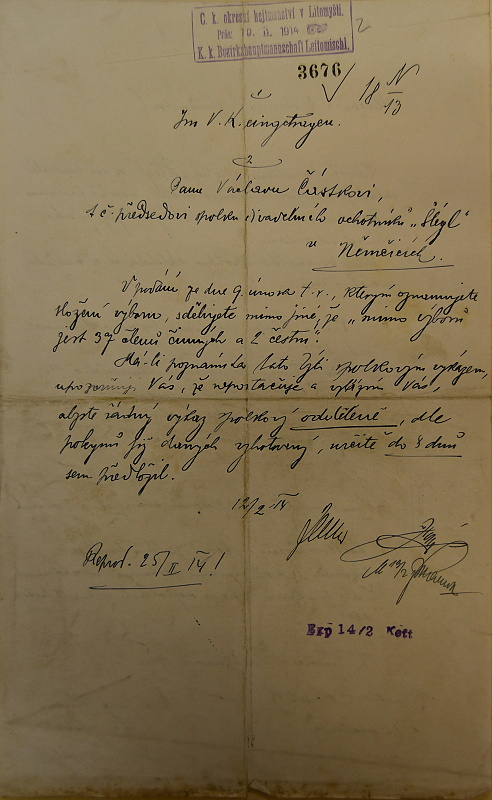 C. k. okresní hejtmanství v Litomyšli.
Präs. 10. II. 1914
K. k. Bezirkshauptmannschaft Leitomischl.
2
3676
18 IV/13
1
Im V. K. eingetragen.
2
Panu Václavu Částkovi,
t. č. předsedovi spolku divadelních ochotníků „Štýgl"
v Němčicích.
V podání ze dne 9. února t. r., kterým oznamujete
složení výboru, sdělujete mimo jiné, že „mimo výboru
jest 37 členů činných a 2 čestní".
Má-li poznámka tato býti spolkovým výkazem,
upozorňuji Vás, že nepostačuje a vyzývám Vás,
abyste řádný výkaz spolkový odděleně, dle
pokynů již daných vyhotovený, určitě do 8 dnů
sem předložil.
12/2 14
Reprod. 25/II 14!
Exp 14/2 Kott